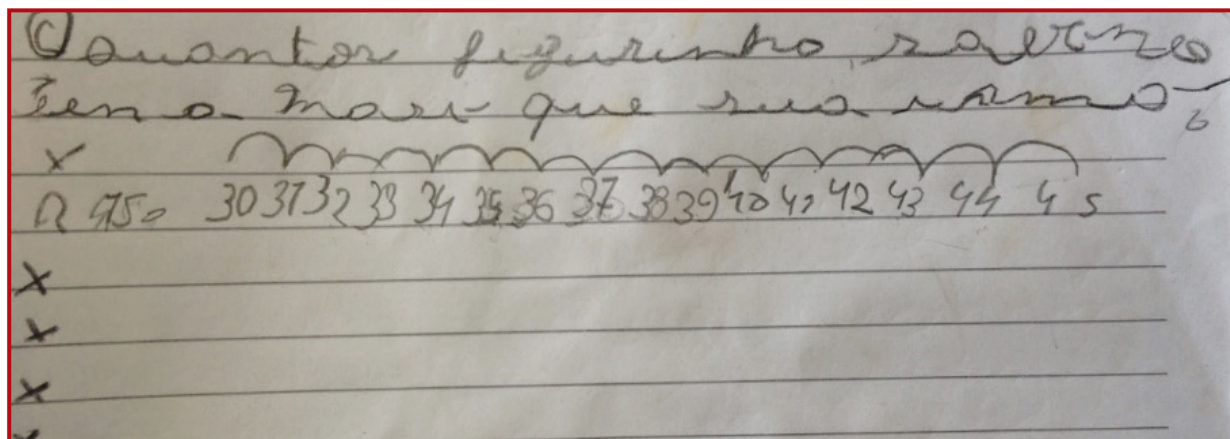 C) Quantas figurinha
tem a mais que sua
x
R 15 30 31 32 33 34 35 36 37 38 39 40 41 42 43 44 45
x
x
x